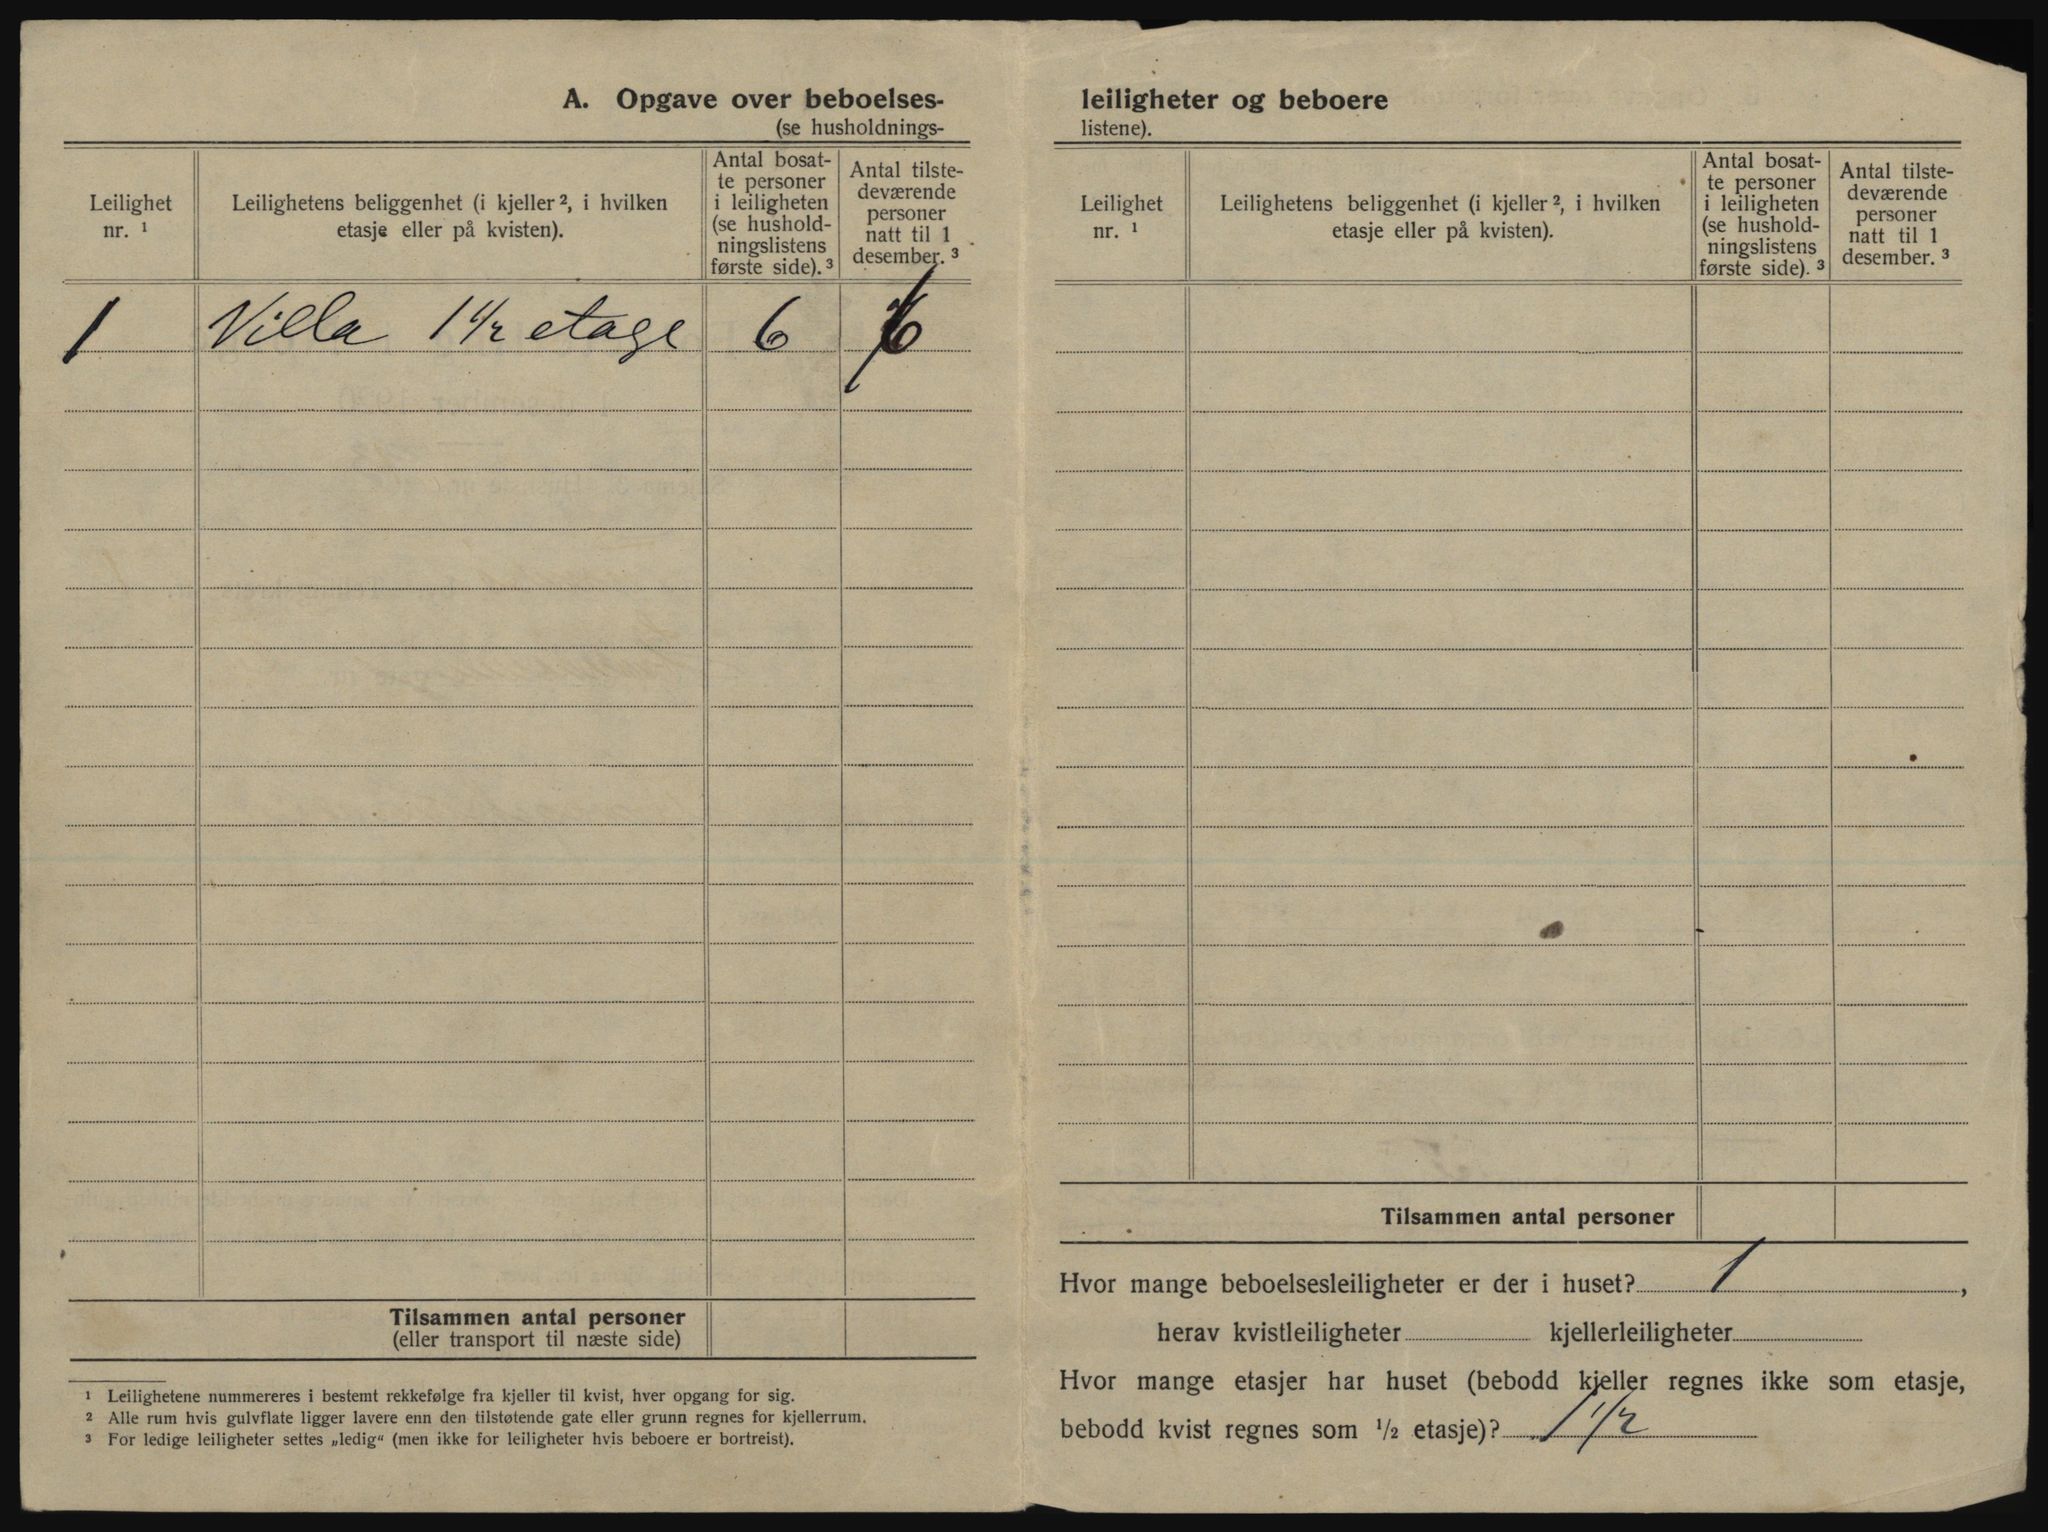 A. Opgave over beboelses-
(se husholdnings-
Leilighet
nr. ¹
Leilighetens beliggenhet (i kjeller ², i hvilken
etasje eller på kvisten).
Antal bosat-
te personer
i leiligheten
(se hushold-
ningslistens
første side). ³
Antal tilste-
deværende
personer
natt til 1
desember. ³
1 Villa 1 1/2 etage 6 6
Tilsammen antal personer
(eller transport til næste side)
¹ Leilighetene nummereres i bestemt rekkefølge fra kjeller til kvist, hver opgang for sig.
² Alle rum hvis gulvflate ligger lavere enn den tilstøtende gate eller grunn regnes for kjellerrum.
³ For ledige leiligheter settes „ledig“ (men ikke for leiligheter hvis beboere er bortreist).
leiligheter og beboere
listene).
Leilighet
nr. ¹
Leilighetens beliggenhet (i kjeller ², i hvilken
etasje eller på kvisten).
Antal bosat-
te personer
i leiligheten
(se hushold-
ningslistens
første side). ³
Antal tilste-
deværende
personer
natt til 1
desember. ³
Tilsammen antal personer
Hvor mange beboelsesleiligheter er der i huset? 1,
herav kvistleiligheter kjellerleiligheter
Hvor mange etasjer har huset (bebodd kjeller regnes ikke som etasje,
bebodd kvist regnes som ½ etasje)? 1 1/2